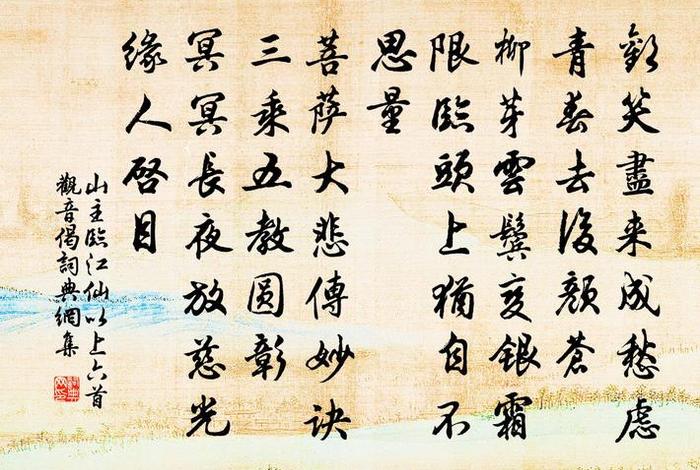 歡笑盡来成愁慮
青春去後顏蒼
柳芽雲鬢变銀霜
限臨頭上猶自不
思量
菩薩大悲傳妙訣
三乘五教圓彰
冥冥長夜放慈光
緣人啓目
山主臨江仙以上六首
觀音偈詞典網集